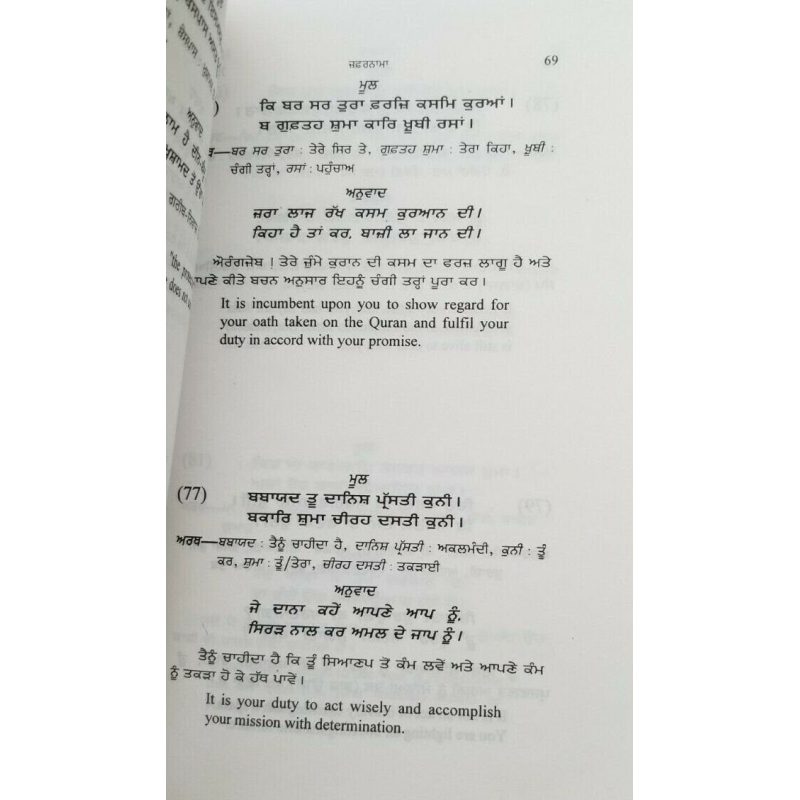 ਜ਼ਫ਼ਰਨਾਮਾ 69
ਮੂਲ
) ਕਿ ਬਰ ਸਰ ਤੁਰਾ ਫ਼ਰਜ਼ਿ ਕਸਮਿ ਕੁਰਆਂ।
ਬ ਗੁਫ਼ਤਹ ਸ਼ੁਮਾ ਕਾਰਿ ਖ਼ੂਬੀ ਰਸਾਂ।
ਬਰ ਸਰ ਤੁਰਾ : ਤੇਰੇ ਸਿਰ ਤੇ, ਗੁਫ਼ਤਹ ਸ਼ੁਮਾ : ਤੇਰਾ ਕਿਹਾ, ਖ਼ੂਬੀ :
ਚੰਗੀ ਤਰ੍ਹਾਂ, ਰਸਾਂ : ਪਹੁੰਚਾਅ
ਅਨੁਵਾਦ
ਜ਼ਰਾ ਲਾਜ ਰੱਖ ਕਸਮ ਕੁਰਆਨ ਦੀ।
ਕਿਹਾ ਹੈ ਤਾਂ ਕਰ, ਬਾਜ਼ੀ ਲਾ ਜਾਨ ਦੀ।
ਔਰੰਗਜ਼ੇਬ ! ਤੇਰੇ ਜ਼ੁੰਮੇ ਕੁਰਾਨ ਦੀ ਕਸਮ ਦਾ ਫਰਜ਼ ਲਾਗੂ ਹੈ ਅਤੇ
ਆਪਣੇ ਕੀਤੇ ਬਚਨ ਅਨੁਸਾਰ ਇਹਨੂੰ ਚੰਗੀ ਤਰ੍ਹਾਂ ਪੂਰਾ ਕਰ।
It is incumbent upon you to show regard for
your oath taken on the Quran and fulfil your
duty in accord with your promise.
ਮੂਲ
(77) ਬਬਾਯਦ ਤੂ ਦਾਨਿਸ਼ ਪ੍ਰੱਸਤੀ ਕੁਨੀ।
ਬਕਾਰਿ ਸ਼ੁਮਾ ਚੀਰਹ ਦਸਤੀ ਕੁਨੀ।
ਅਰਥ—ਬਬਾਯਦ : ਤੈਨੂੰ ਚਾਹੀਦਾ ਹੈ, ਦਾਨਿਸ਼ ਪ੍ਰੱਸਤੀ : ਅਕਲਮੰਦੀ, ਕੁਨੀ : ਤੂੰ
ਕਰ, ਸ਼ੁਮਾ : ਤੂੰ/ਤੇਰਾ, ਚੀਰਹ ਦਸਤੀ : ਤਕੜਾਈ
ਅਨੁਵਾਦ
ਜੇ ਦਾਨਾ ਕਹੇਂ ਆਪਣੇ ਆਪ ਨੂੰ,
ਸਿਰੜ ਨਾਲ ਕਰ ਅਮਲ ਦੇ ਜਾਪ ਨੂੰ।
ਤੈਨੂੰ ਚਾਹੀਦਾ ਹੈ ਕਿ ਤੂੰ ਸਿਆਣਪ ਤੋਂ ਕੰਮ ਲਵੇਂ ਅਤੇ ਆਪਣੇ ਕੰਮ
ਨੂੰ ਤਕੜਾ ਹੋ ਕੇ ਹੱਥ ਪਾਵੇਂ।
It is your duty to act wisely and accomplish
your mission with determination.